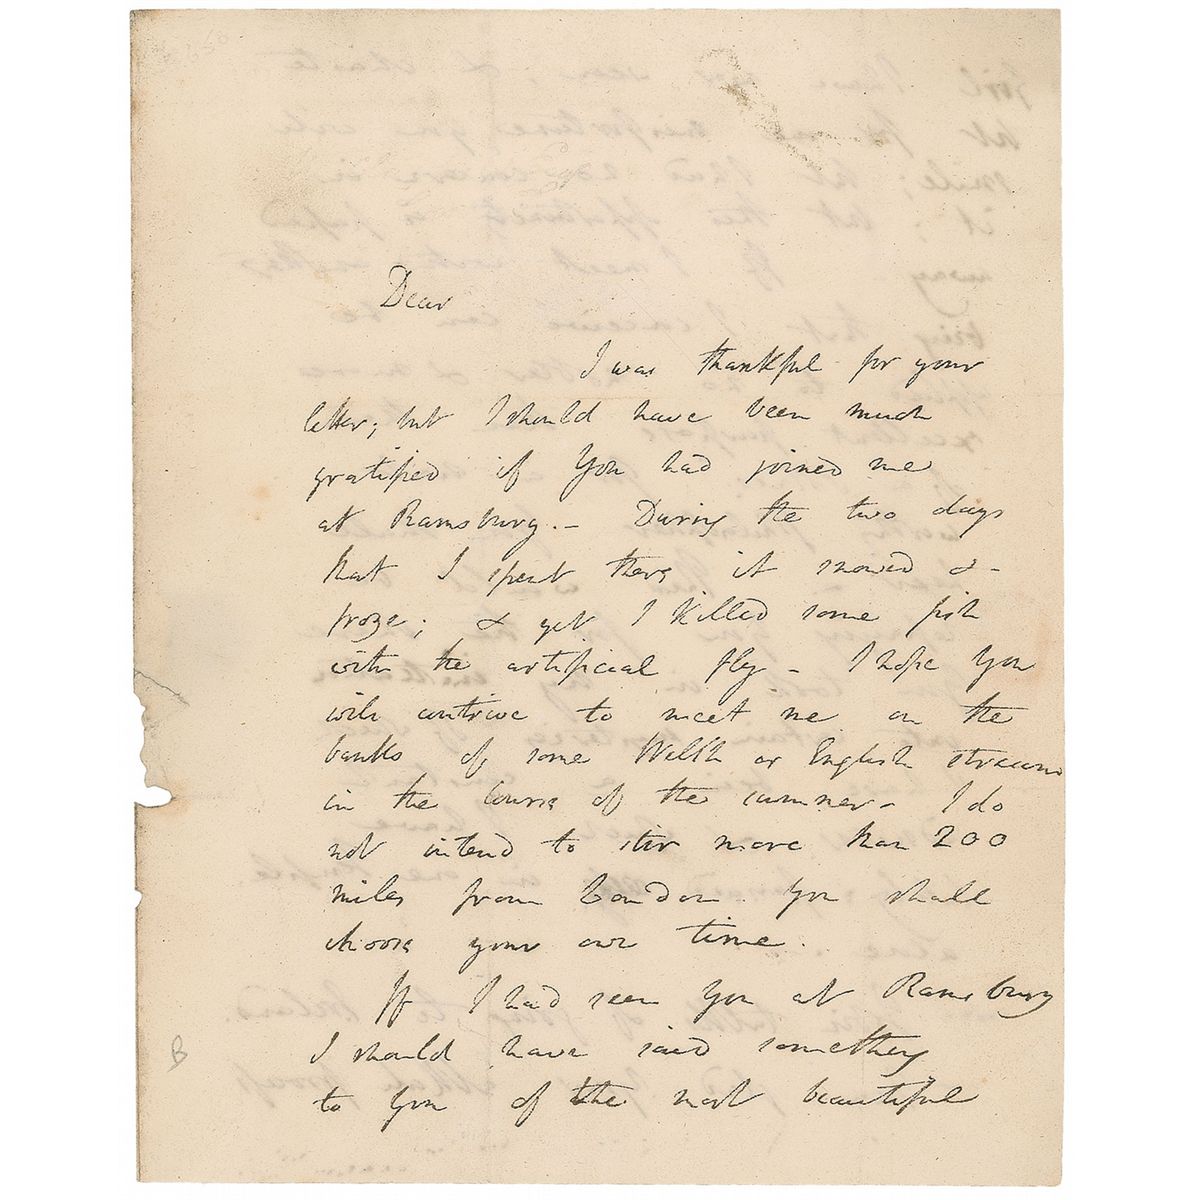 Dear
I was thankful for your
letter; but I should have been much
gratified if you had joined me
at Ramsbury. – During the two days
that I spent there it snowed & –
froze; & yet I killed some fish
with the artificial fly – I hope you
will contrive to meet me on the
banks of some Welsh or English stream
in the course of the summer – I do
not intend to stir more than 200
miles from London. You shall
choose your own time.
If I had seen you at Ramsbury
I should have said something
to you of the most beautiful
B